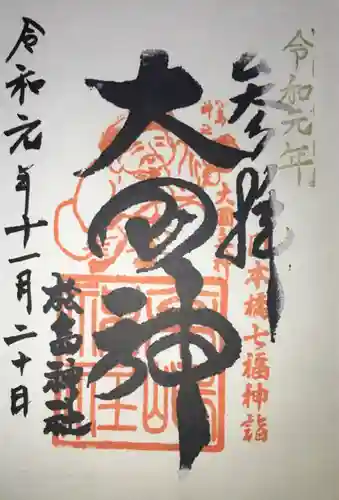 令和元年
参拝
日本橋七福神詣
大国神
大国神
松島神社
令和元年十一月二十日